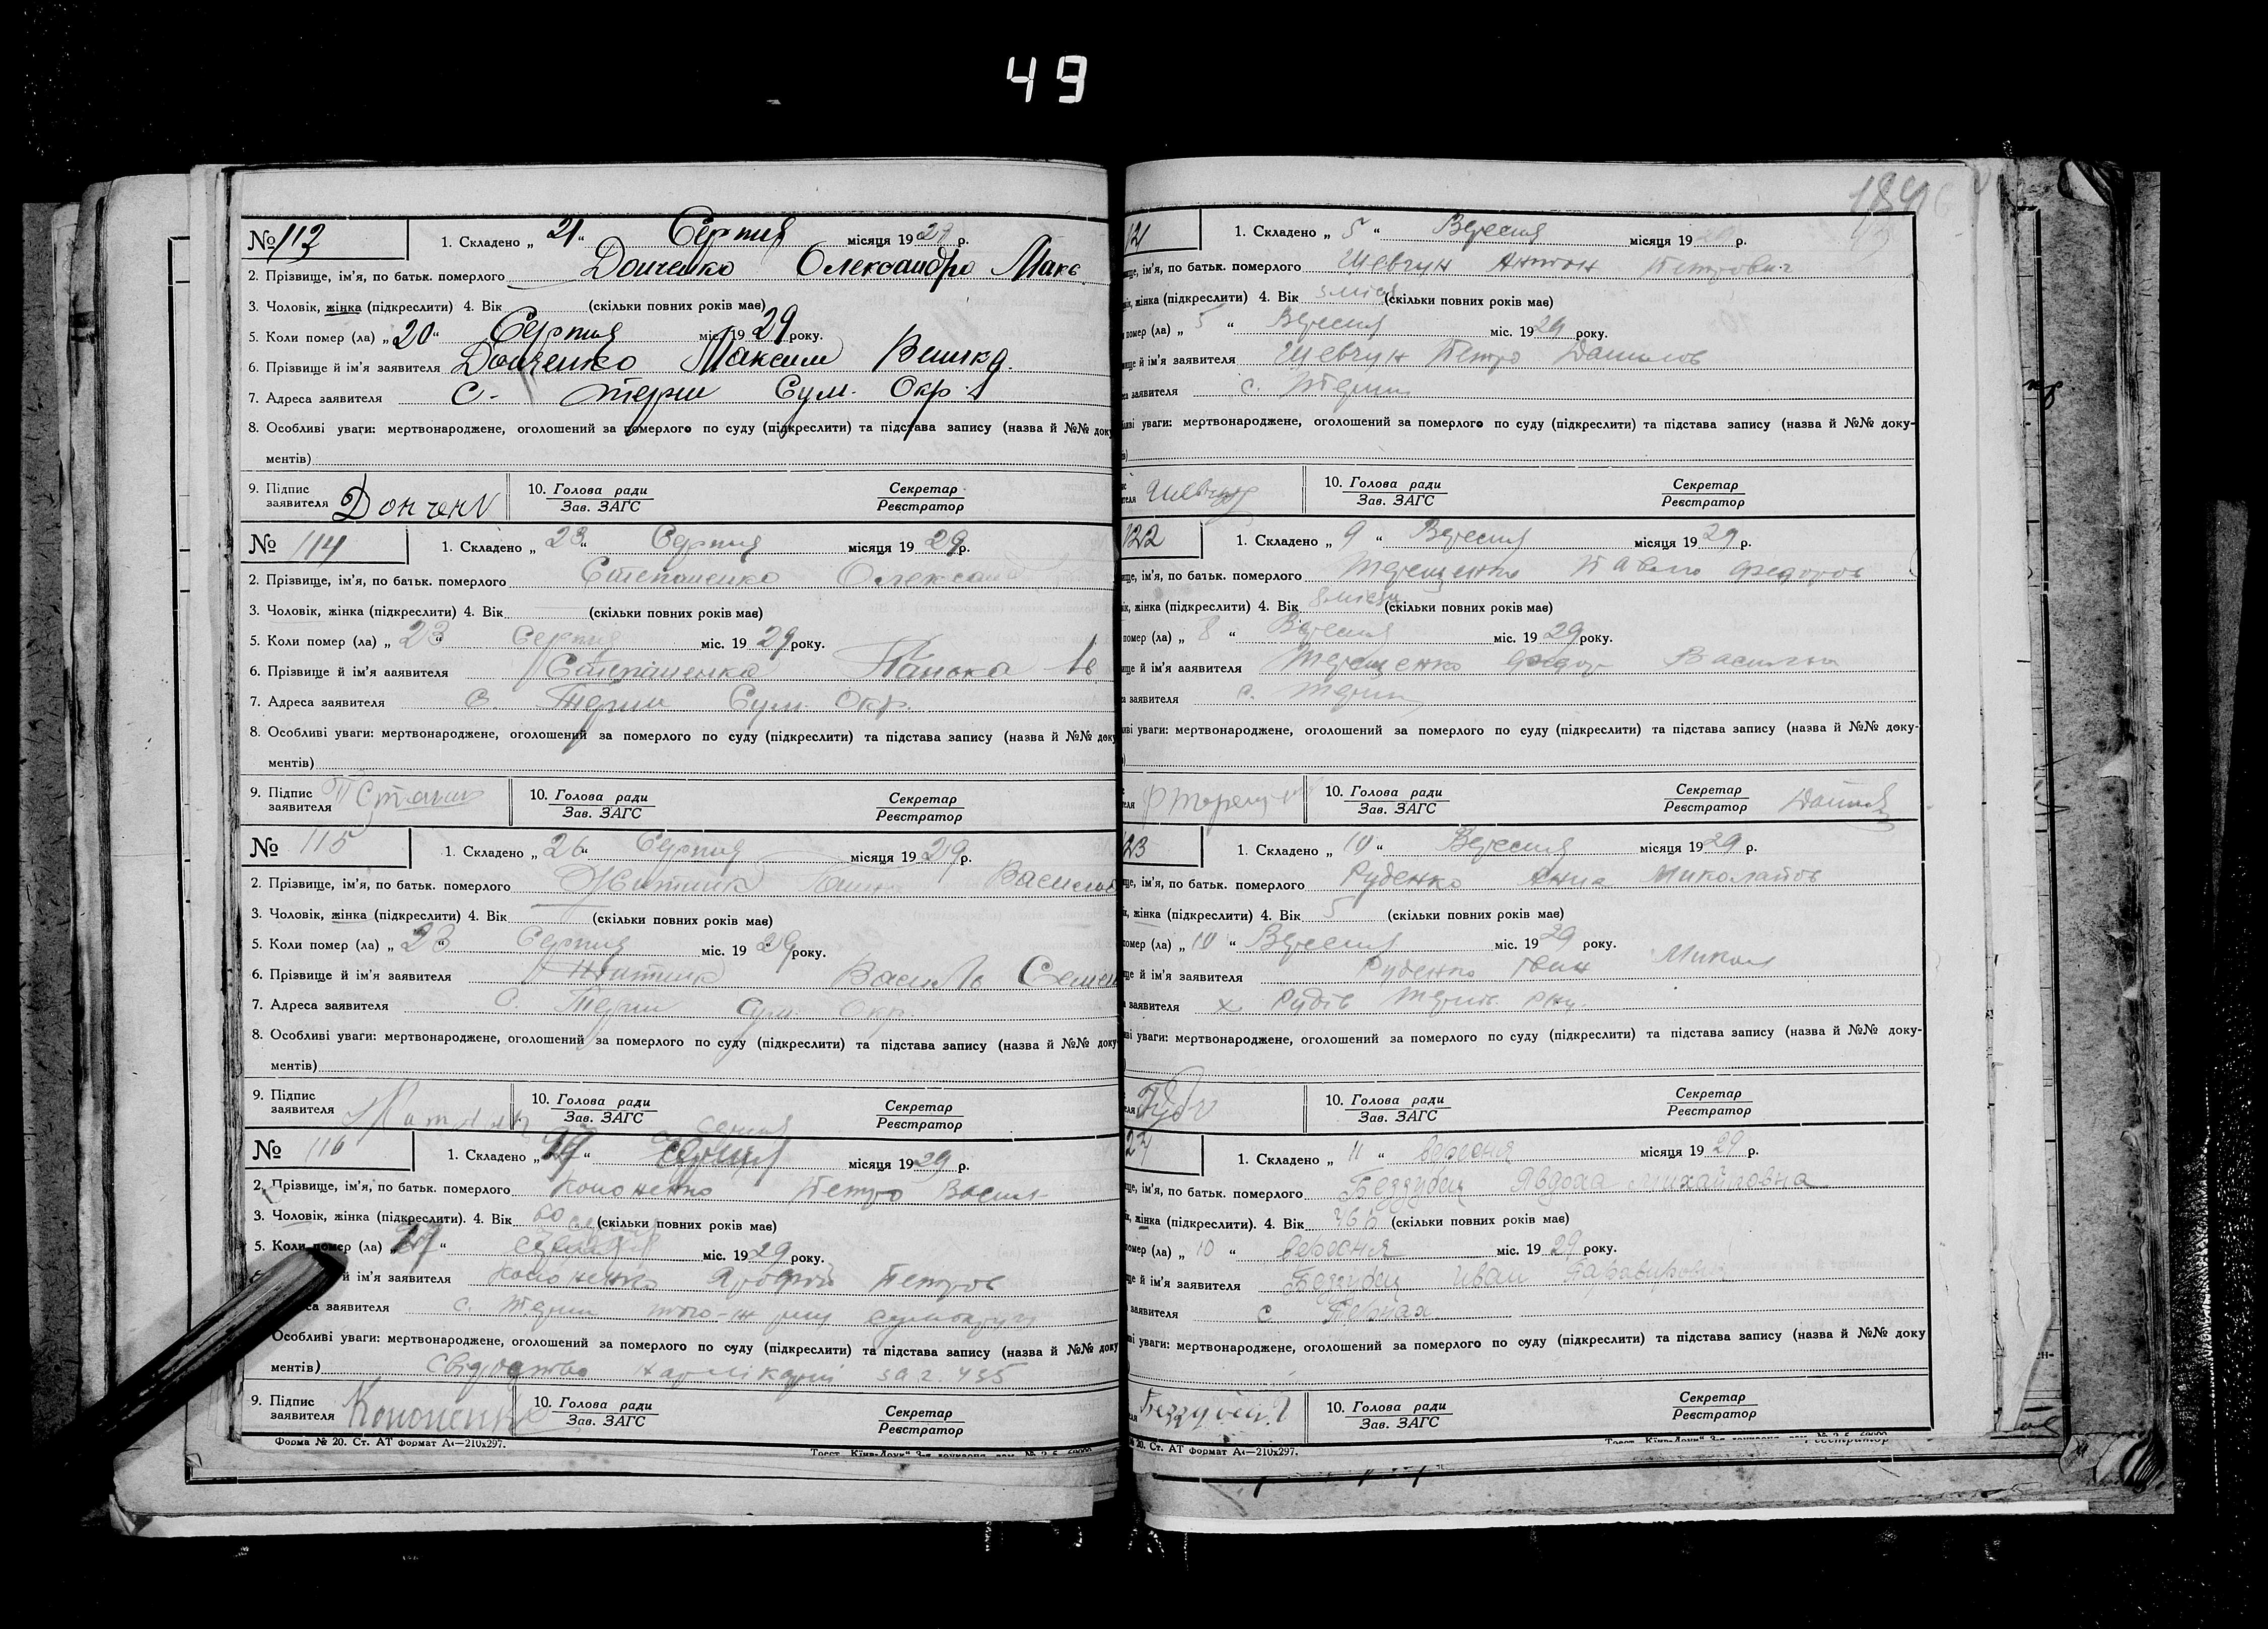 49
№ 113
1. Складено „ 21 “ Серпня місяця 1929 р.
2. Прізвище, ім'я, по батьк. померлого Донченко Олександра Макс
3. Чоловік, жінка (підкреслити) 4. Вік (скільки повних років має)
5. Коли помер (ла) „ 20 “ Серпня міс. 1929 року.
6. Прізвище й ім'я заявителя Донченко Максим
7. Адреса заявителя С. Терни Сум. Окр.
8. Особливі уваги: мертвонароджене, оголошений за померлого по суду (підкреслити) та підстава запису (назва й №№ доку
ментів)
9. Підпис заявителя Донченк
10. Голова ради
Зав. ЗАГС
Секретар
Реєстратор
№ 114
1. Складено „ 23 “ Серпня місяця 1929 р.
2. Прізвище, ім'я, по батьк. померлого Степаненко Олекса
3. Чоловік, жінка (підкреслити) 4. Вік (скільки повних років має)
5. Коли помер (ла) „ 23 “ Серпня міс. 1929 року.
6. Прізвище й ім'я заявителя Степаненко
7. Адреса заявителя С. Терни Сум. Окр.
8. Особливі уваги: мертвонароджене, оголошений за померлого по суду (підкреслити) та підстава запису (назва й №№ доку
ментів)
9. Підпис заявителя
10. Голова ради
Зав. ЗАГС
Секретар
Реєстратор
№ 115
1. Складено „ 26 “ Серпня місяця 1929 р.
2. Прізвище, ім'я, по батьк. померлого Житник Василів
3. Чоловік, жінка (підкреслити) 4. Вік (скільки повних років має)
5. Коли помер (ла) „ 23 “ Серпня міс. 1929 року.
6. Прізвище й ім'я заявителя Житник Василь Семен
7. Адреса заявителя С. Терни Сум. Окр.
8. Особливі уваги: мертвонароджене, оголошений за померлого по суду (підкреслити) та підстава запису (назва й №№ доку
ментів)
9. Підпис заявителя
10. Голова ради
Зав. ЗАГС
Секретар
Реєстратор
№ 116
1. Складено „ 27 “ серпня місяця 1929 р.
2. Прізвище, ім'я, по батьк. померлого Кононенко Петро Васил
3. Чоловік, жінка (підкреслити). 4. Вік 60 (скільки повних років має)
5. Коли помер (ла) 27 “ серпня міс. 1929 року.
й ім'я заявителя Кононенко Петров
са заявителя с. Терни того-ж рну
Особливі уваги: мертвонароджене, оголошений за померлого по суду (підкреслити) та підстава запису (назва й №№ доку
ментів) Свідоцтво за г. 455
9. Підпис заявителя Кононенко
10. Голова ради
Зав. ЗАГС
Секретар
Реєстратор
Форма № 20. Ст. АТ формат А4—210x297.
121
1. Складено „ 5 “ Вересня місяця 1929 р.
ще, ім'я, по батьк. померлого Шевчун Антон Петрович
жінка (підкреслити) 4. Вік 3 міся (скільки повних років має)
помер (ла) „ 5 “ Вересня міс. 1929 року.
ще й ім'я заявителя Шевчун Петро Данилов
заявителя с. Терни
уваги: мертвонароджене, оголошений за померлого по суду (підкреслити) та підстава запису (назва й №№ доку-
Шевчун
10. Голова ради
Зав. ЗАГС
Секретар
Реєстратор
122
1. Складено „ 9 “ Вересня місяця 1929 р.
ще, ім'я, по батьк. померлого Терещенко Павло Федоров
жінка (підкреслити) 4. Вік 8 місяц (скільки повних років має)
помер (ла) „ 8 “ Вересня міс. 1929 року.
ще й ім'я заявителя Терещенко Федор Васильов
заявителя с. Терни
уваги: мертвонароджене, оголошений за померлого по суду (підкреслити) та підстава запису (назва й №№ доку-
10. Голова ради
Зав. ЗАГС
Секретар
Реєстратор
123
1. Складено „ 10 “ Вересня місяця 1929 р.
ще, ім'я, по батьк. померлого Руденко Анна Миколаїов
жінка (підкреслити) 4. Вік 5 (скільки повних років має)
помер (ла) „ 10 “ Вересня міс. 1929 року.
ще й ім'я заявителя Руденко Іван Микол
заявителя х Рудів Терн. рну.
уваги: мертвонароджене, оголошений за померлого по суду (підкреслити) та підстава запису (назва й №№ доку-
10. Голова ради
Зав. ЗАГС
Секретар
Реєстратор
24
1. Складено „ 11 “ вересня місяця 1929 р.
ще, ім'я, по батьк. померлого Беззубец Явдоха Михайловна
жінка (підкреслити). 4. Вік 76 (скільки повних років має)
помер (ла) „ 10 “ вересня міс. 1929 року.
ще й ім'я заявителя Беззубец Иван
заявителя с Тернах
уваги: мертвонароджене, оголошений за померлого по суду (підкреслити) та підстава запису (назва й №№ доку
10. Голова ради
Зав. ЗАГС
Секретар
Реєстратор
20. Ст. АТ формат А4—210x297.